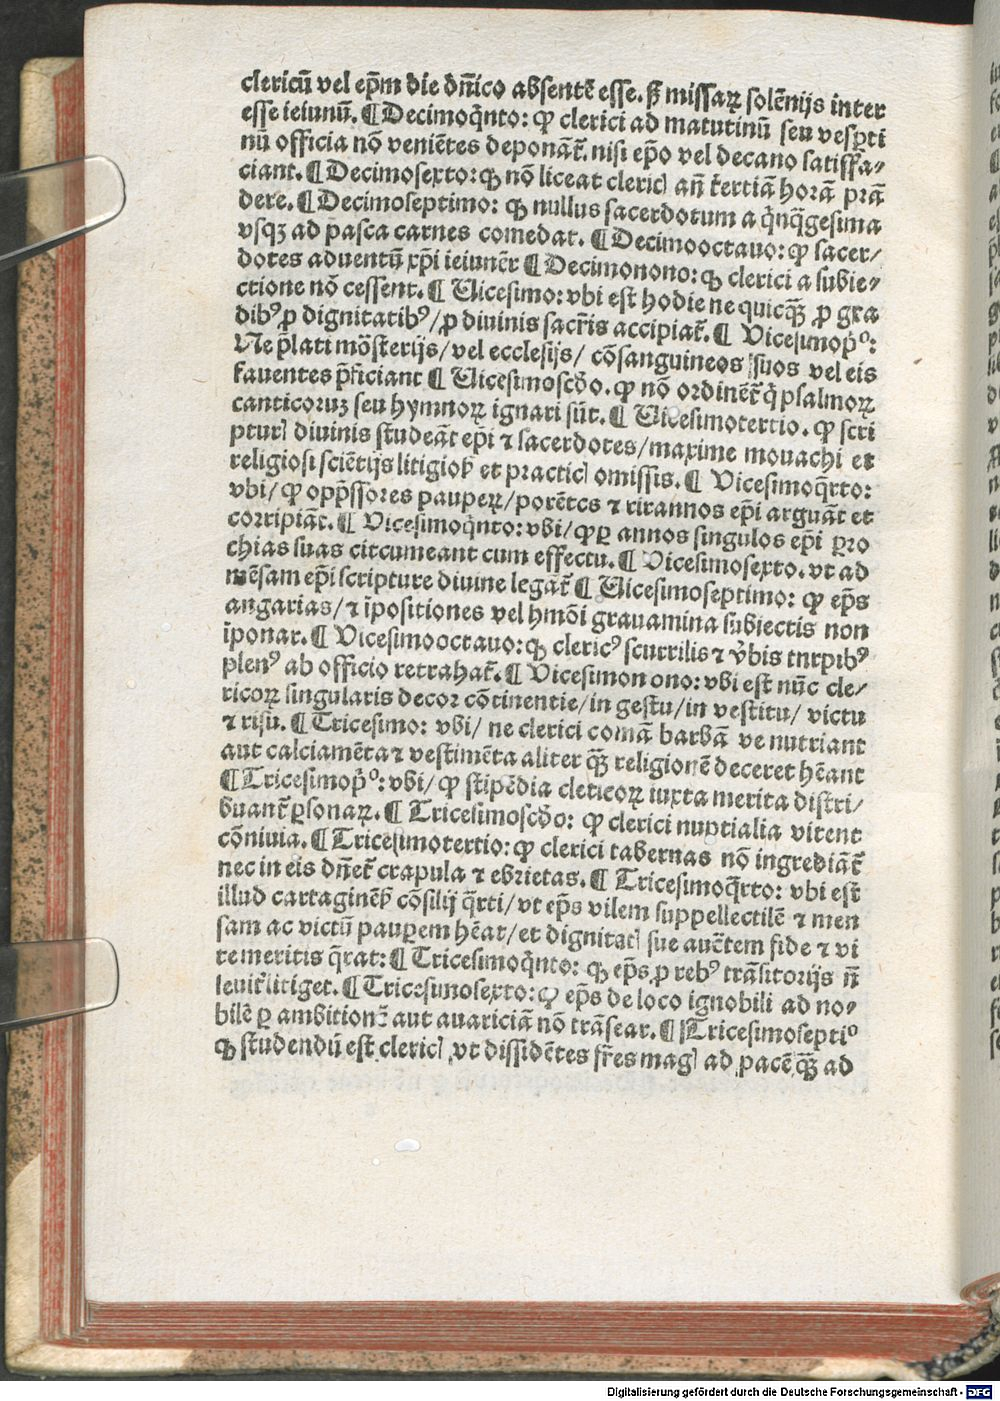 clericũ vel ep̃m die dñico absentẽ esse. ſꝫ missaꝝ solẽnijs inter
esse ieiunũ. ¶ Decimoq̃nto: ꝙ clerici ad matutinũ seu vesꝑti
nũ officia nõ veniẽtes deponãt᷑. nisi ep̃o vel decano satisfa⸗
ciant. ¶ Decimosexto: ꝙ nõ liceat clericꝭ añ tertiã horã prã
dere. ¶ Decimoseptimo: ꝙ nullus sacerdotum a q̃nq̃gesima
vsqꝫ ad pasca carnes comedat. ¶ Decimooctauo: ꝙ sacer/
dotes aduentũ xp̃i ieiunẽt ¶ Decimonono: ꝙ clerici a subie⸗
ctione nõ cessent. ¶ Vicesimo: vbi est hodie ne quicq̃ꝫ ꝓ gra
dibꝰ ꝓ dignitatibꝰ/ ꝓ diuinis sacris accipiat᷑. ¶ Vicesimopº:
Ne p̃lati mõsterijs/ vel ecclesijs/ cõsanguineos suos vel eis
fauentes p̃ficiant ¶ Vicesimoscdo. ꝙ nõ ordinẽt᷑ q̃ psalmoꝝ
canticoruꝫ seu hymnoꝝ ignari sũt. ¶ Vicesimotertio. ꝙ scri
pturꝭ diuinis studeãt ep̃i ⁊ sacerdotes/ maxime mouachi et
religiosi sciẽtijs litigiosꝭ et practicꝭ omissis. ¶ Vicesimoq̃rto:
vbi/ ꝙ opp̃ssores pauperꝝ/ potẽtes ⁊ tirannos ep̃i arguãt et
corripiãt. ¶ Vicesimoq̃nto: vbi/ ꝙ ꝑ annos singulos ep̃i ꝑro
chias suas circumeant cum effectu. ¶ Vicesimosexto. vt ad
mẽsam ep̃i scripture diuine legãt᷑ ¶ Vicesimoseptimo: ꝙ ep̃s
angarias/ ⁊ ĩpositiones vel hm̃õi grauamina subiectis non
ĩponat. ¶ Vicesimooctauo: ꝙ clericꝰ scurrilis ⁊ v̾bis tnrpibꝰ
plenꝰ ab officio retrahat᷑. ¶ Vicesimon ono: vbi est nũc cle/
ricoꝝ singularis decor cõtinentie/ in gestu/ in vestitu/ victu
⁊ risu. ¶ Tricesimo: vbi/ ne clerici comã barbã ve nutriant
aut calciamẽta ⁊ vestimẽta aliter q̃ꝫ religionẽ deceret hẽant
¶ Tricesimopº: vbi/ ꝙ stipẽdia clericoꝝ iuxta merita distri/
buant᷑ ꝑsonaꝝ. ¶ Tricesimoscdo: ꝙ clerici nuptialia vitent
cõniuia. ¶ Tricesimotertio: ꝙ clerici tabernas nõ ingrediãt᷑
nec in eis dñet᷑ crapula ⁊ ebrietas. ¶ Tricesimoq̃rto: vbi est
illud cartaginẽsꝭ cõsilij q̃rti/ vt ep̃s vilem suppellectilẽ ⁊ men
sam ac victũ pauꝑem hẽat/ et dignitatꝭ sue auc̃tem fide ⁊ vi
te meritis q̃rat: ¶ Tricesimoq̃nto: ꝙ ep̃s ꝓ rebꝰ trãsitorijs ñ
leuit᷑ litiget. ¶ Tricesimosexto: ꝙ ep̃s de loco ignobili ad no⸗
bilẽ ꝑ ambitionẽ aut auariciã nõ trãseat. ¶ Tricesimoseptiº
ꝙ studendũ est clericꝭ, vt dissidẽtes fr̃es magꝭ ad pacẽ q̃ꝫ ad
Digitalisierung gefördert durch die Deutsche Forschungsgemeinschaft - DFG